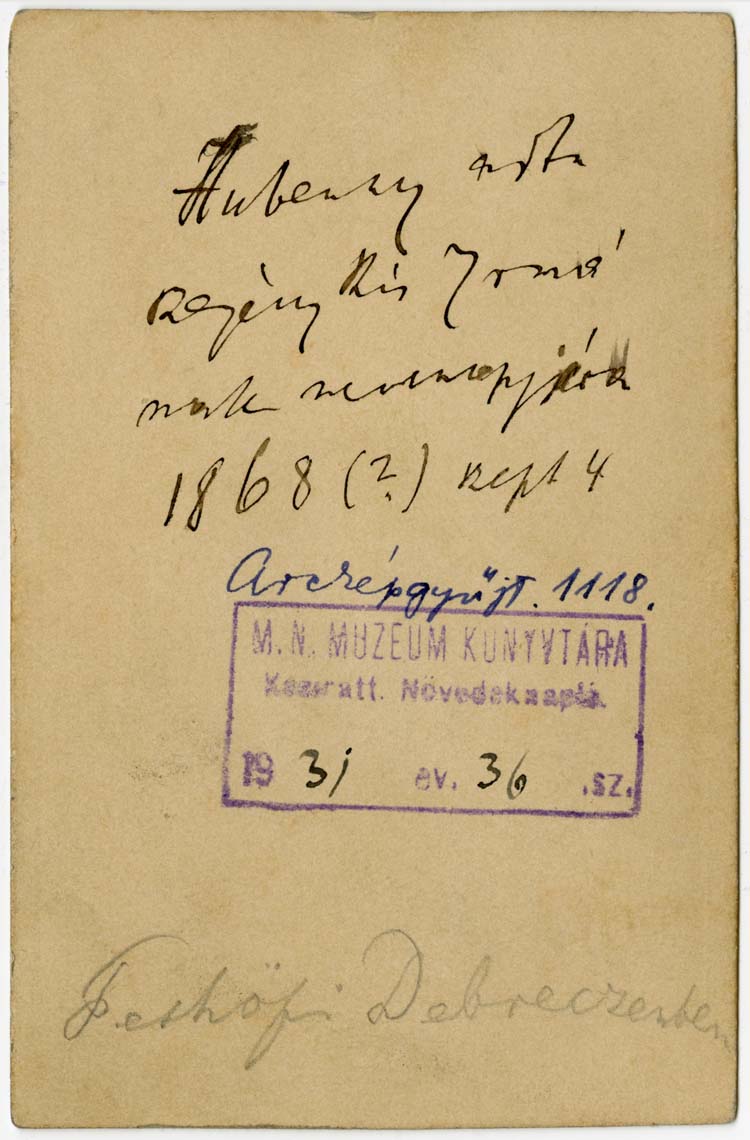 Hubenay adta
szegény Kis Irmá
nak nevenapjára
1868 (?) szept 4
Arcképgyűjt. 1118.
M. N. MUZEUM KÖNYVTÁRA
Kéziratt. Növedéknapló.
19 31 év. 36 .sz.
Debreczenben